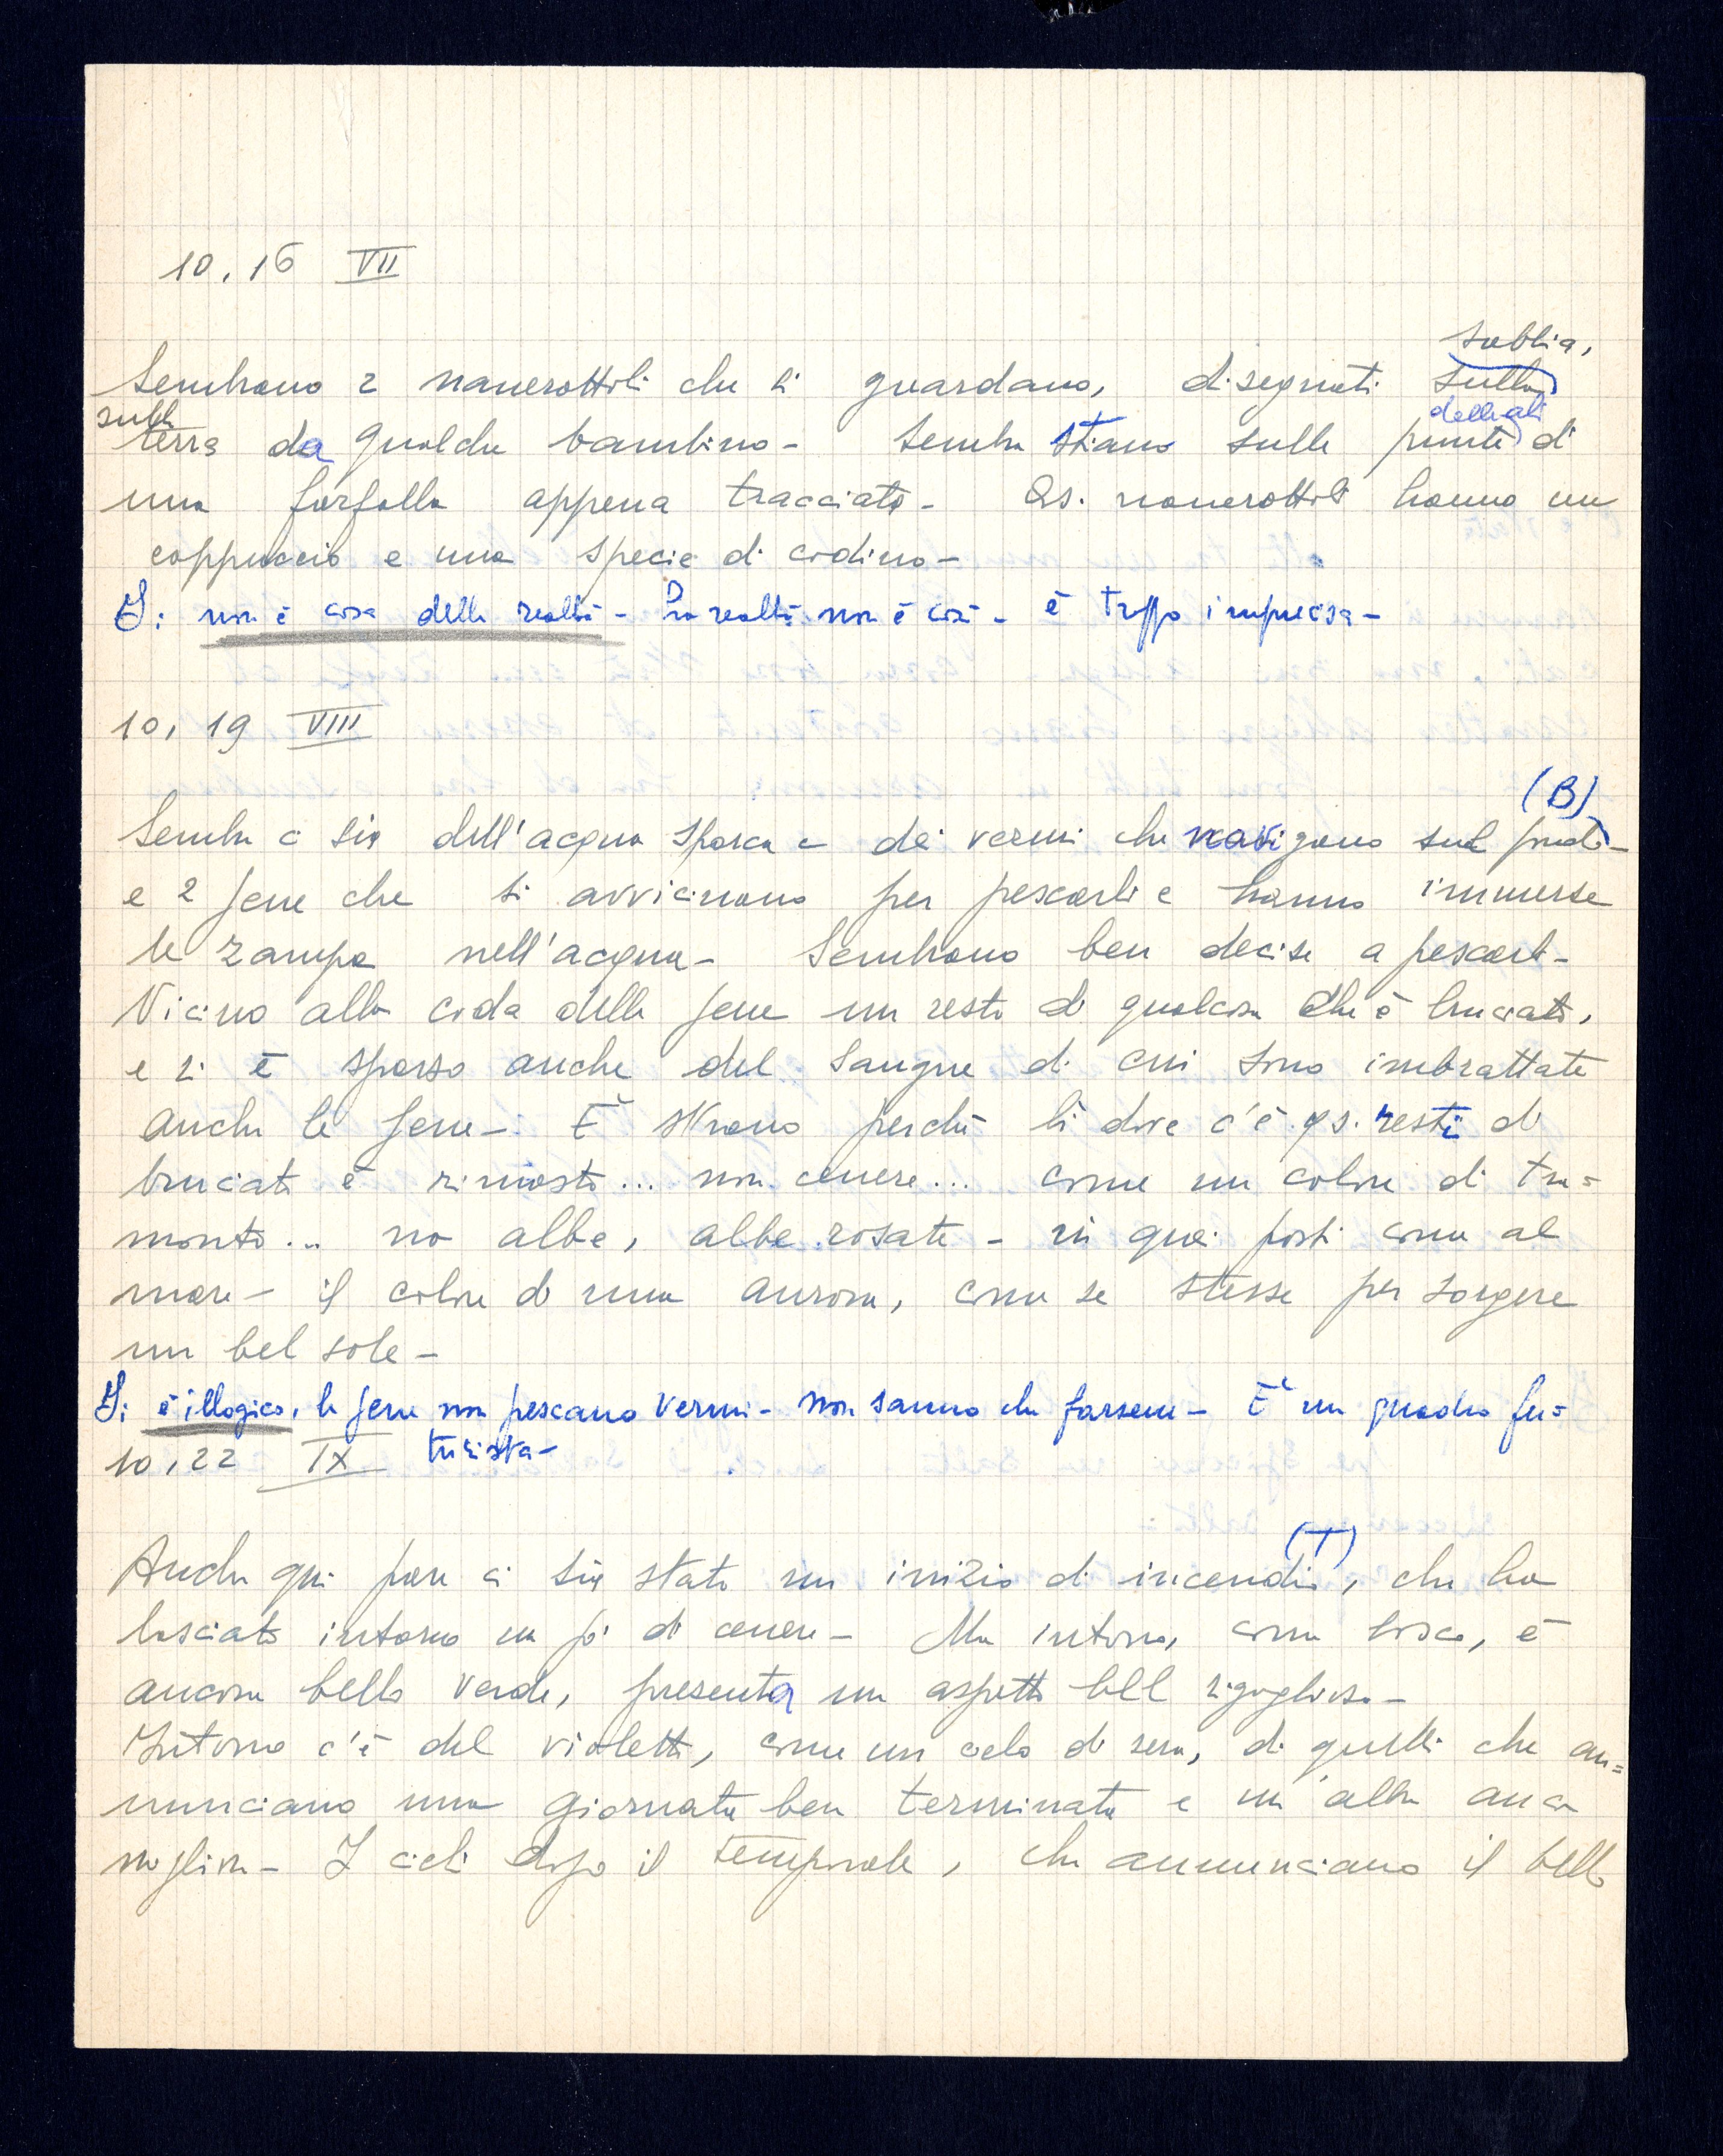 10,16 VII
sabbia,
Sembrano 2 nanerottoli che si guardano, disegnati sulla
sulla
delle ali
terra da qualche bambino - Sembra stiano sulle punte di
una farfalla appena tracciata - Qs. nanerottoli hanno un
cappuccio e una specie di codino -
I: non è cosa della realtà - La realtà non è così - è troppo imprecisa -
10,19 VIII
(B)
Sembra ci sia dell'acqua sporca e dei vermi che navigano sul fondo -
e 2 jene che si avvicinano per pescarli e hanno immerse
le zampe nell'acqua - Sembrano ben decise a pescarli -
Vicino alla coda delle jene un resto di qualcosa che è bruciato,
e si è sparso anche del sangue di cui sono imbrattate
anche le jene - È strano perché lì dove c'è qs. resti di
bruciato è rimasto... non cenere... come un colore di tra=
monto... no albe, albe rosate - in quei posti come al
mare - il colore di una aurora, come se stesse per sorgere
un bel sole -
I: è illogico, le jene non pescano vermi - non sanno che farsene - È un quadro fu=
turista -
10,22 IX
(T)
Anche qui pare ci sia stato un inizio di incendio, che ha
lasciato intorno un po' di cenere - Ma intorno, come bosco, è
ancora bello verde, presenta un aspetto bell rigoglioso -
Intorno c'è del violetto, come un cielo di sera, di quelli che an=
nunciano una giornata ben terminata e un'alba anco
migliore - I cieli dopo il temporale, che annunciano il bello